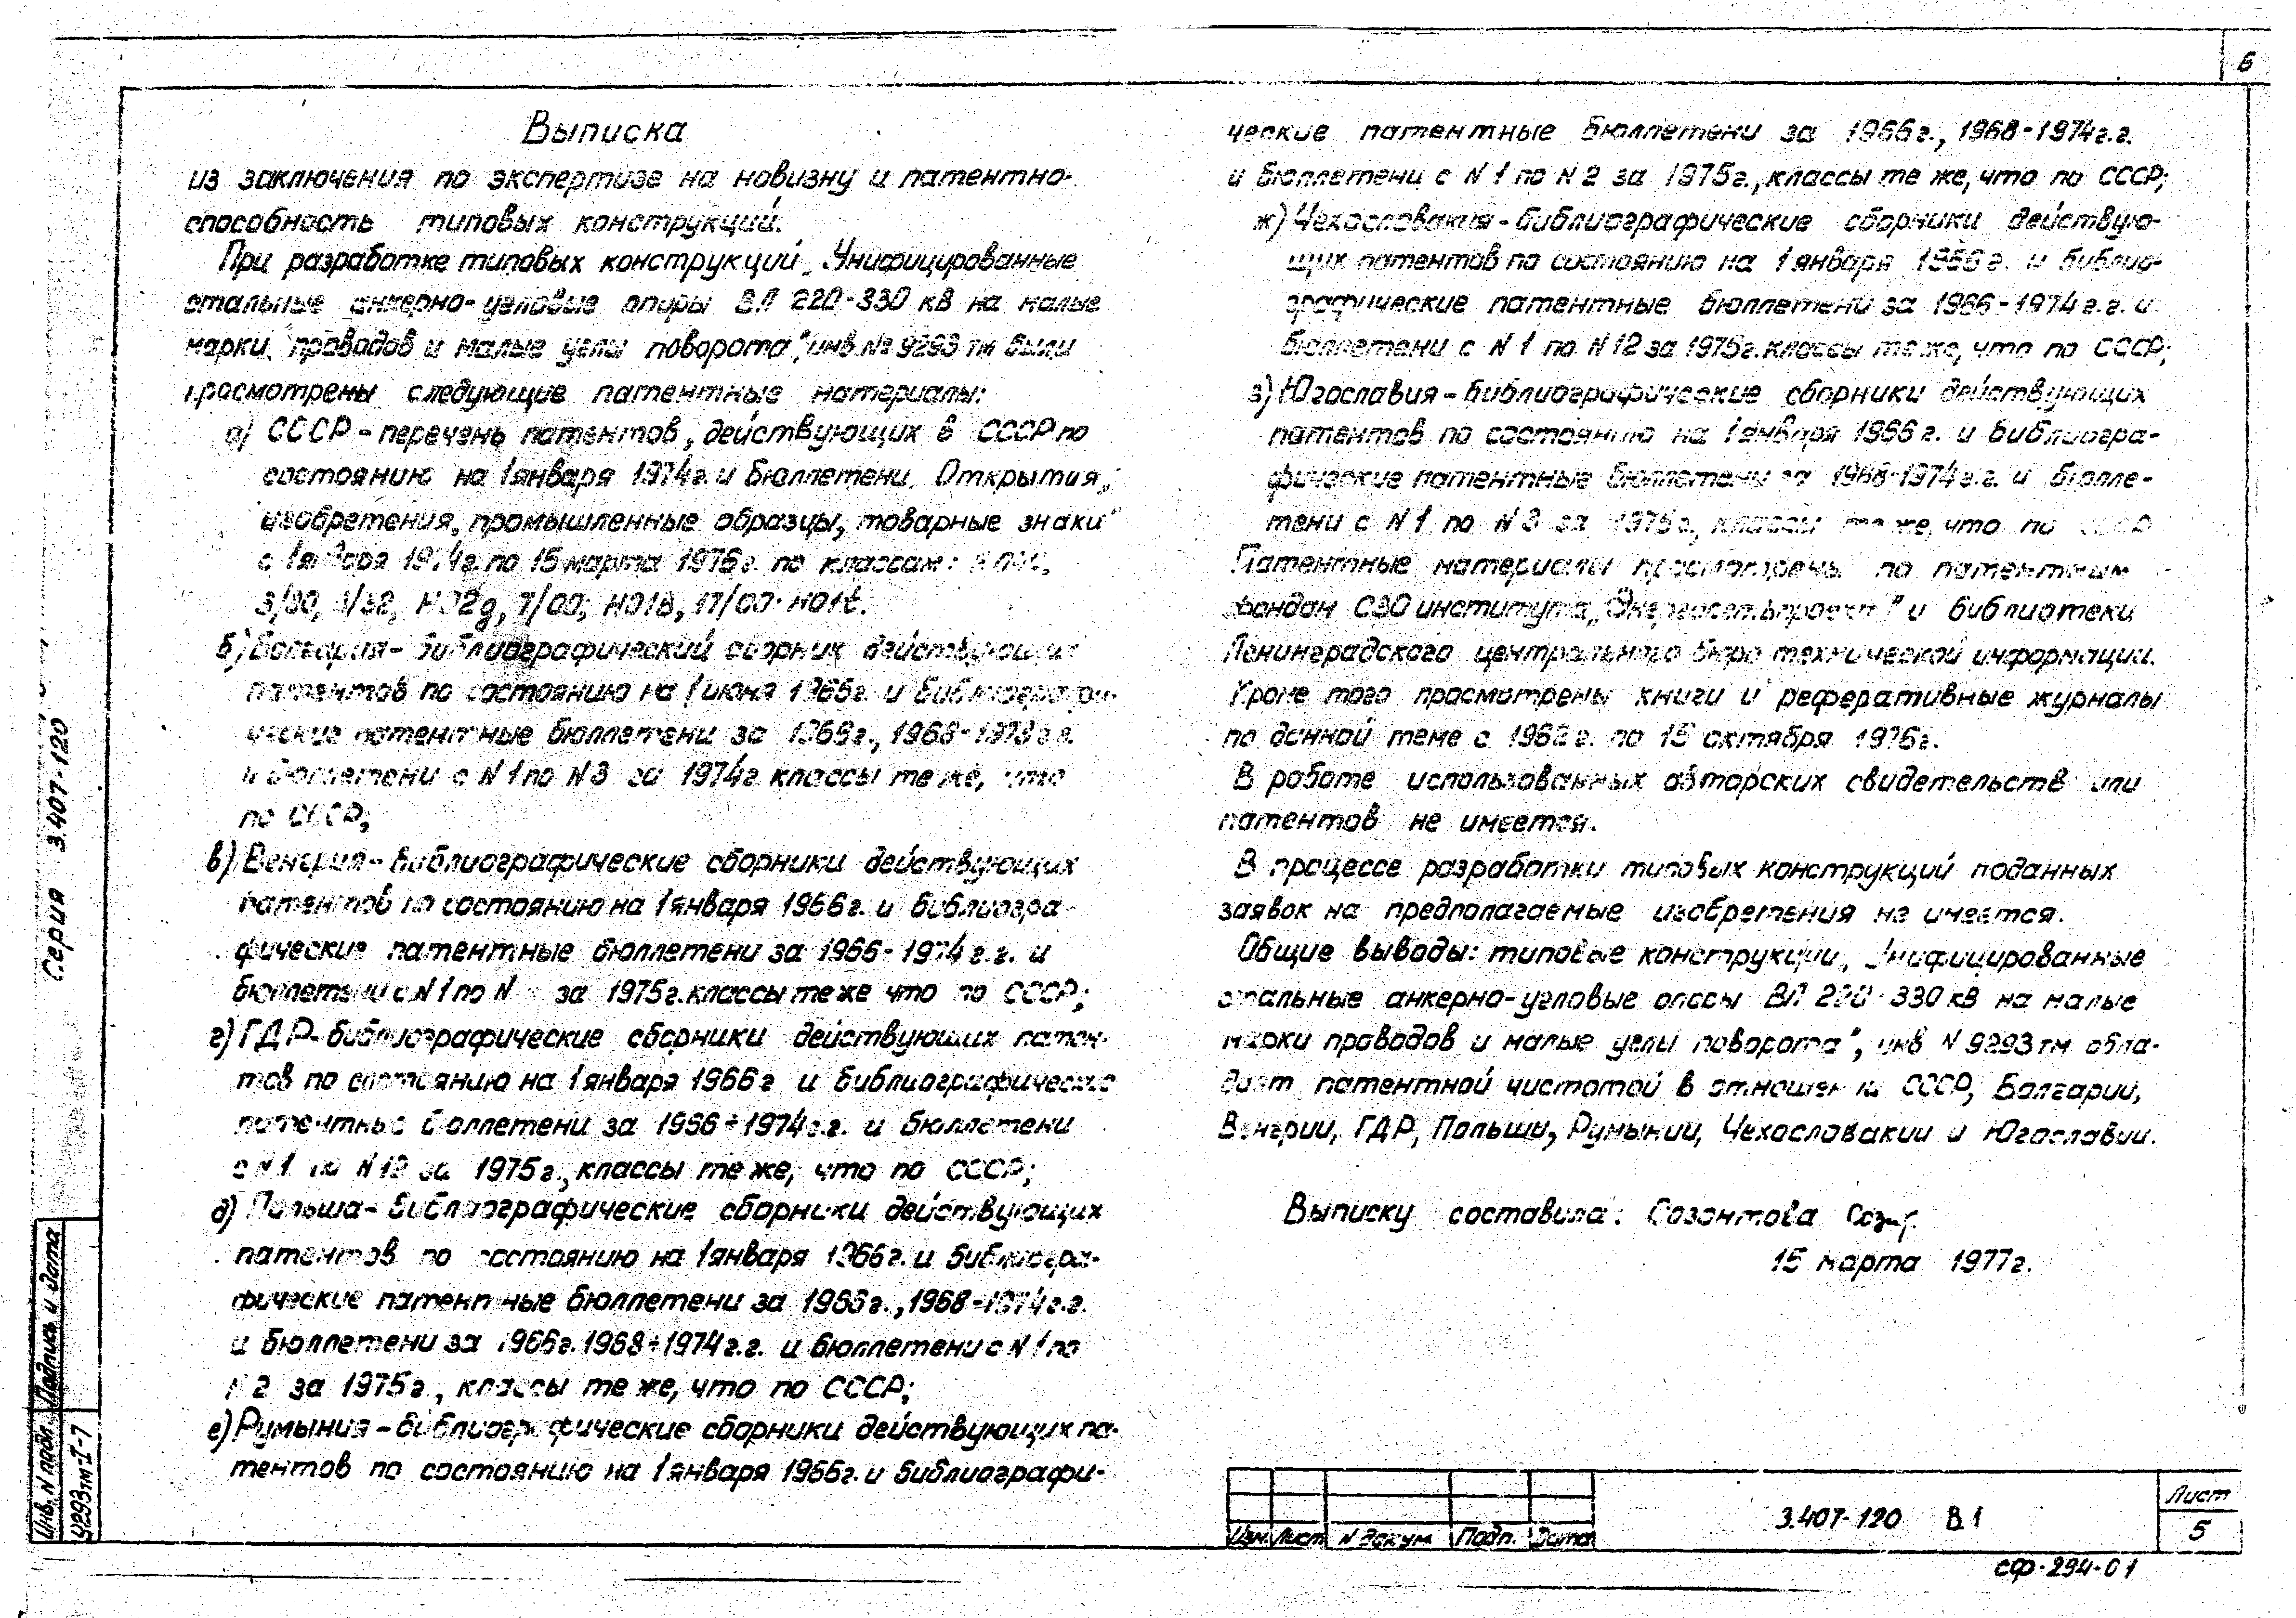 6
Выписка
из заключения по экспертизе на новизну и патентно-
способность типовых конструкций.
При разработке типовых конструкций „Унифицированные
стальные анкерно-угловые опоры ВЛ 220-330 кВ на малые
марки проводов и малые углы поворота", инв. № 9293 тм были
просмотрены следующие патентные материалы:
а) СССР - перечень патентов, действующих в СССР по
состоянию на 1 января 1974г. и бюллетени „Открытия,
изобретения, промышленные образцы, товарные знаки"
с 1 января 1974г. по 15 марта 1976г. по классам:
H02g, 7/00; H01b, 17/00; H01t.
б) Болгария - библиографический сборник действующих
патентов по состоянию на 1 июня 1965г. и библиографи-
ческие патентные бюллетени за 1966г., 1968-1973г.г.
и бюллетени с N 1 по N 3 за 1974г. классы те же, что
по СССР;
в) Венгрия - библиографические сборники действующих
патентов по состоянию на 1 января 1966г. и библиогра-
фические патентные бюллетени за 1966-1974г.г. и
бюллетени с N 1 по N за 1975г. классы те же что по СССР;
г) ГДР - библиографические сборники действующих патен-
тов по состоянию на 1 января 1966г и библиографические
патентные бюллетени за 1966÷1974г.г. и бюллетени
с N 1 по N 12 за 1975г., классы те же, что по СССР;
д) Польша - библиографические сборники действующих
патентов по состоянию на 1 января 1966г. и библиогра-
фические патентные бюллетени за 1966г., 1968-1974г.г.
и бюллетени за 1966г. 1968÷1974г.г. и бюллетени с N 1 по
N 2 за 1975г., классы те же, что по СССР;
е) Румыния - библиографические сборники действующих па-
тентов по состоянию на 1 января 1966г. и библиографи-
ческие патентные бюллетени за 1966г., 1968-1974г.г.
и бюллетени с N 1 по N 2 за 1975г., классы те же, что по СССР;
ж) Чехословакия - библиографические сборники действую-
щих патентов по состоянию на 1 января 1966г. и библио-
графические патентные бюллетени за 1966-1974г.г. и
бюллетени с N 1 по N 12 за 1975г. классы те же, что по СССР;
з) Югославия - библиографические сборники действующих
патентов по состоянию на 1 января 1966г. и библиогра-
фические патентные бюллетени за 1968-1974г.г. и бюлле-
тени с N 1 по N 3 за 1975г., классы те же, что по СССР
Патентные материалы просмотрены по патентным
фондам СЗО института „Энергосетьпроект" и библиотеки
Ленинградского центрального бюро технической информации.
Кроме того просмотрены книги и реферативные журналы
по данной теме с 1962г. по 15 октября 1976г.
В работе использованных авторских свидетельств или
патентов не имеется.
В процессе разработки типовых конструкций поданных
заявок на предполагаемые изобретения не имеется.
Общие выводы: типовые конструкции „Унифицированные
стальные анкерно-угловые опоры ВЛ 220-330 кВ на малые
марки проводов и малые углы поворота", инв N 9293тм обла-
дают патентной чистотой в отношении СССР, Болгарии,
Венгрии, ГДР, Польши, Румынии, Чехословакии и Югославии.
Выписку составила: Созонтова
15 марта 1977г.
Серия 3.407-120
Подпись и дата
Инв. N подл.
9293тм-I-7
Изм. Лист N докум Подп. Дата
3.407-120 В.1
Лист
5
СФ-294-01